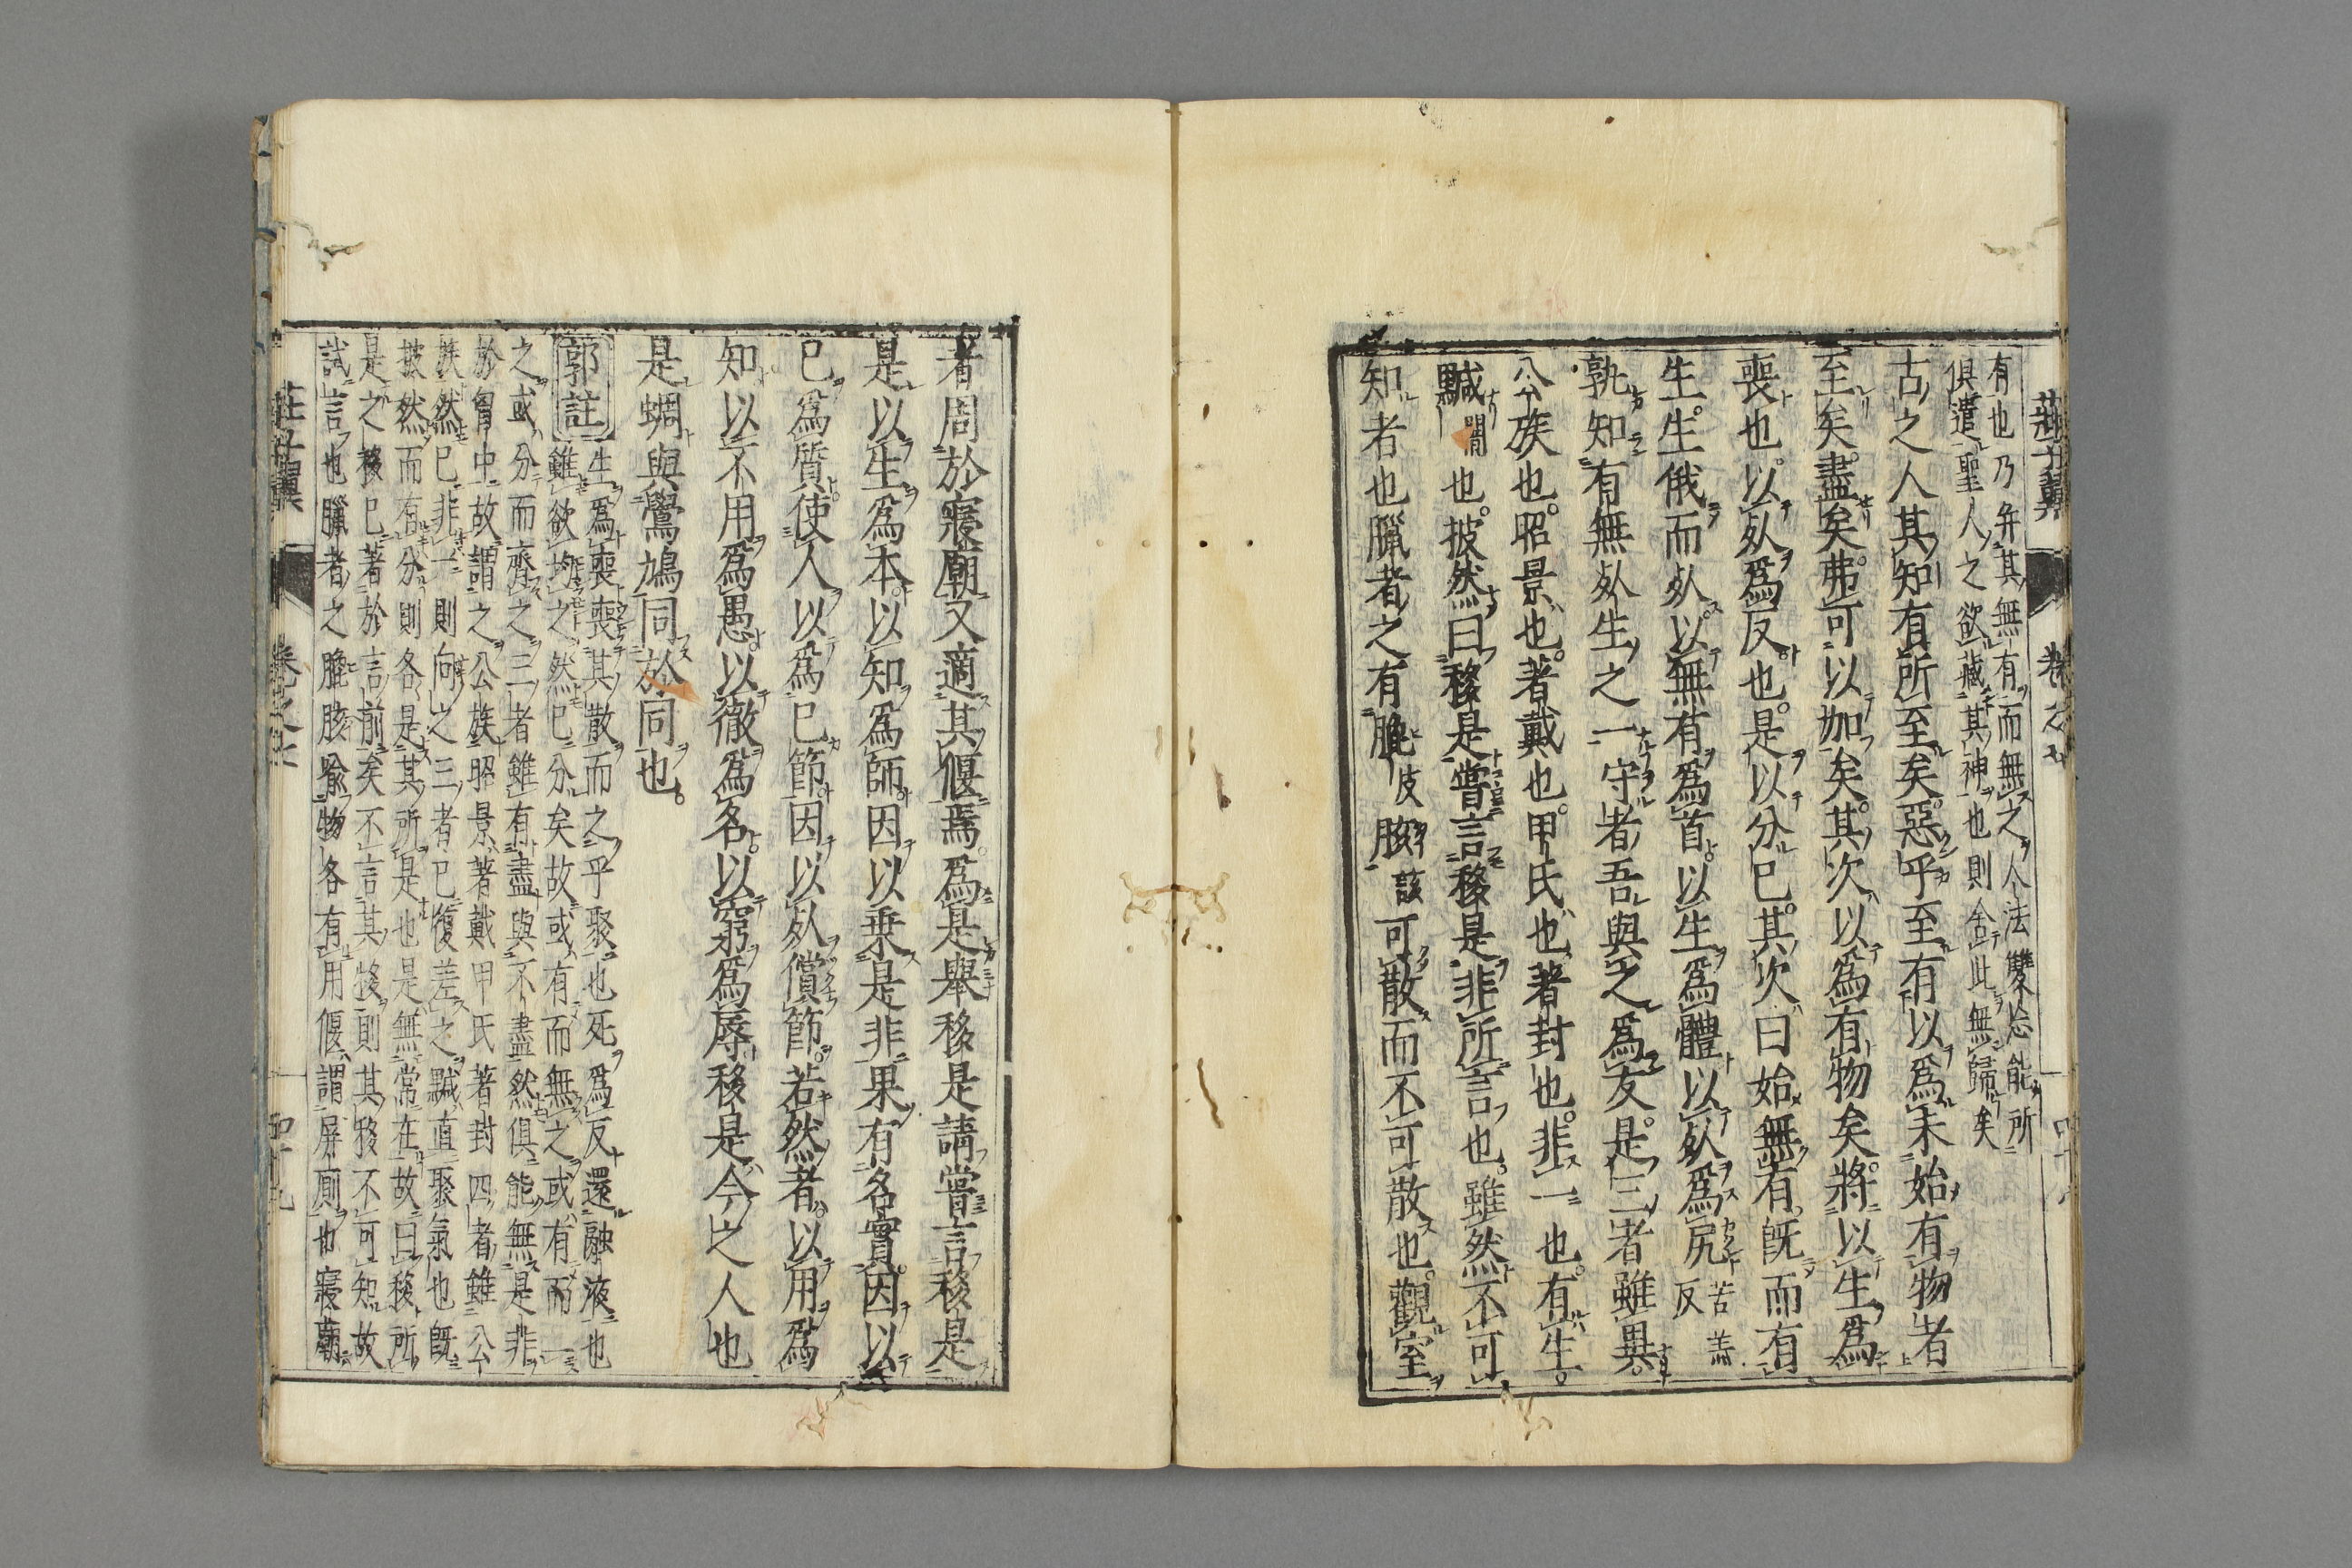 莊子翼 卷之七
有也乃并其無有而無之人法雙忘能所
俱遣聖人之欲藏其神也則舍此無歸矣
古之人其知有所至矣惡乎至有以爲未始有物者
至矣盡矣弗可以加矣其次以爲有物矣將以生爲
喪也以死爲反也是以分已其次曰始無有旣而有
生生俄而死以無有爲首以生爲體以死爲尻苦羔反
孰知有無死生之一守者吾與之爲友是三者雖異
公族也昭景也著戴也甲氏也著封也非一也有生
黬闇也披然曰移是嘗言移是非所言也雖然不可
知者也臘者之有膍皮胲該可散而不可散也觀室
者周於寢廟又適其偃焉爲是舉移是請嘗言移是
是以生爲本以知爲師因以乗是非果有名實因以
已爲質使人以爲已節因以死償節若然者以用爲
知以不用爲愚以徹爲名以窮爲辱移是今之人也
是蜩與鷽鳩同於同也
郭註生爲喪喪其散而之乎聚也死爲反還融液也
雖欲均之然已分矣故或有而無之或有而一
之或分而齊之三者雖有盡與不盡然俱能無是非
於胷中故謂之公族昭景著戴甲氏著封四者雖公
族然已非一則向之三者已復差之黬直聚氣也旣
披然而有分則各是其所是也是無常在故曰移所
是之移已著於言前矣不言其移則其移不可知故
試言也臘者之膍胲喩物各有用偃謂屏廁也寢廟
莊子翼 卷之七 四十九